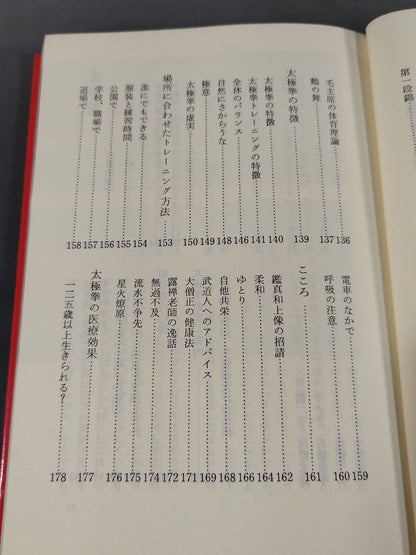 第一段錦
毛主席の体育理論……136
鶴の舞……137
太極拳の特徴……139
太極拳の特徴……140
太極拳トレーニングの特徴……141
全体のバランス……146
自然にさからうな……148
極意……149
太極拳の虚実……150
場所に合わせたトレーニング方法……153
誰にでもできる……154
服装と練習時間……155
公園で……156
学校、職場で……157
道場で……158
電車のなかで……159
呼吸の注意……160
こころ……161
鑑真和上像の招請……162
柔和……164
ゆとり……166
自他共栄……168
武道人へのアドバイス……169
大僧正の健康法……171
露禅老師の逸話……172
無過不及……174
流水不争先……175
星火燎原……176
太極拳の医療効果……177
一二五歳以上生きられる？……178